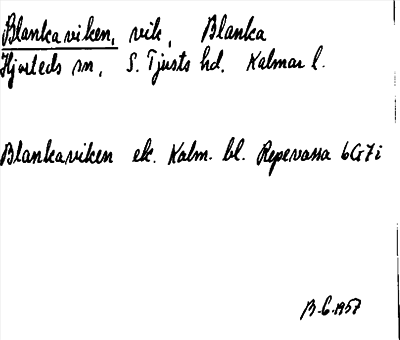 Blankaviken, vik, Blanka
Hjorteds sn, S. Tjusts hd. Kalmar l.
Blankaviken ek. Kalm. bl. Repevassa 6G7i
B.G. 1957